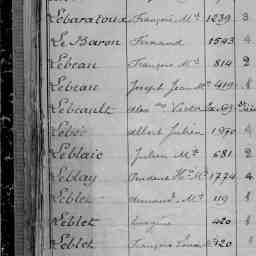 Lebaratoux François Mie 1239 3
Le Baron Fernand 1543 4
Lebeau François Mie 814 2
Lebeau Joseph Jean Mie 419 1
Lebeault Victor
Lebée Albert Julien 1970 4
Leblaic Julien Mie 681 2
Leblay Prudent Mie 1774 4
Leblet Armand Mie 119 1
Leblet Eugène 420 1
Leblet François Louis 720